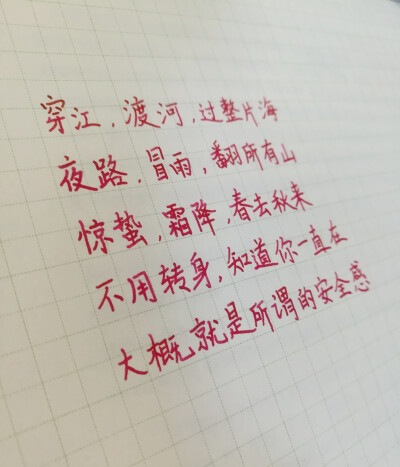 穿江,渡河,过整片海
夜路,冒雨,翻所有山
惊蛰,霜降,春去秋来
不用转身,知道你一直在
大概就是所谓的安全感